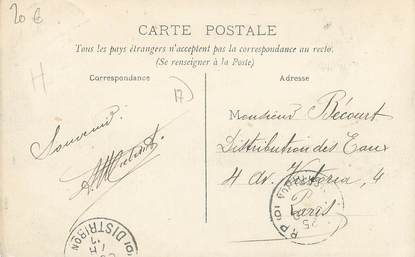 20 €
CARTE POSTALE
Tous les pays étrangers n'acceptent pas la correspondance au recto.
(Se renseigner à la Poste)
Correspondance
Adresse
H
17
Monsieur Bécourt
Souvenir.
Distribution des Eaux
4 av. Victoria, 4
Paris
DISTRIBON